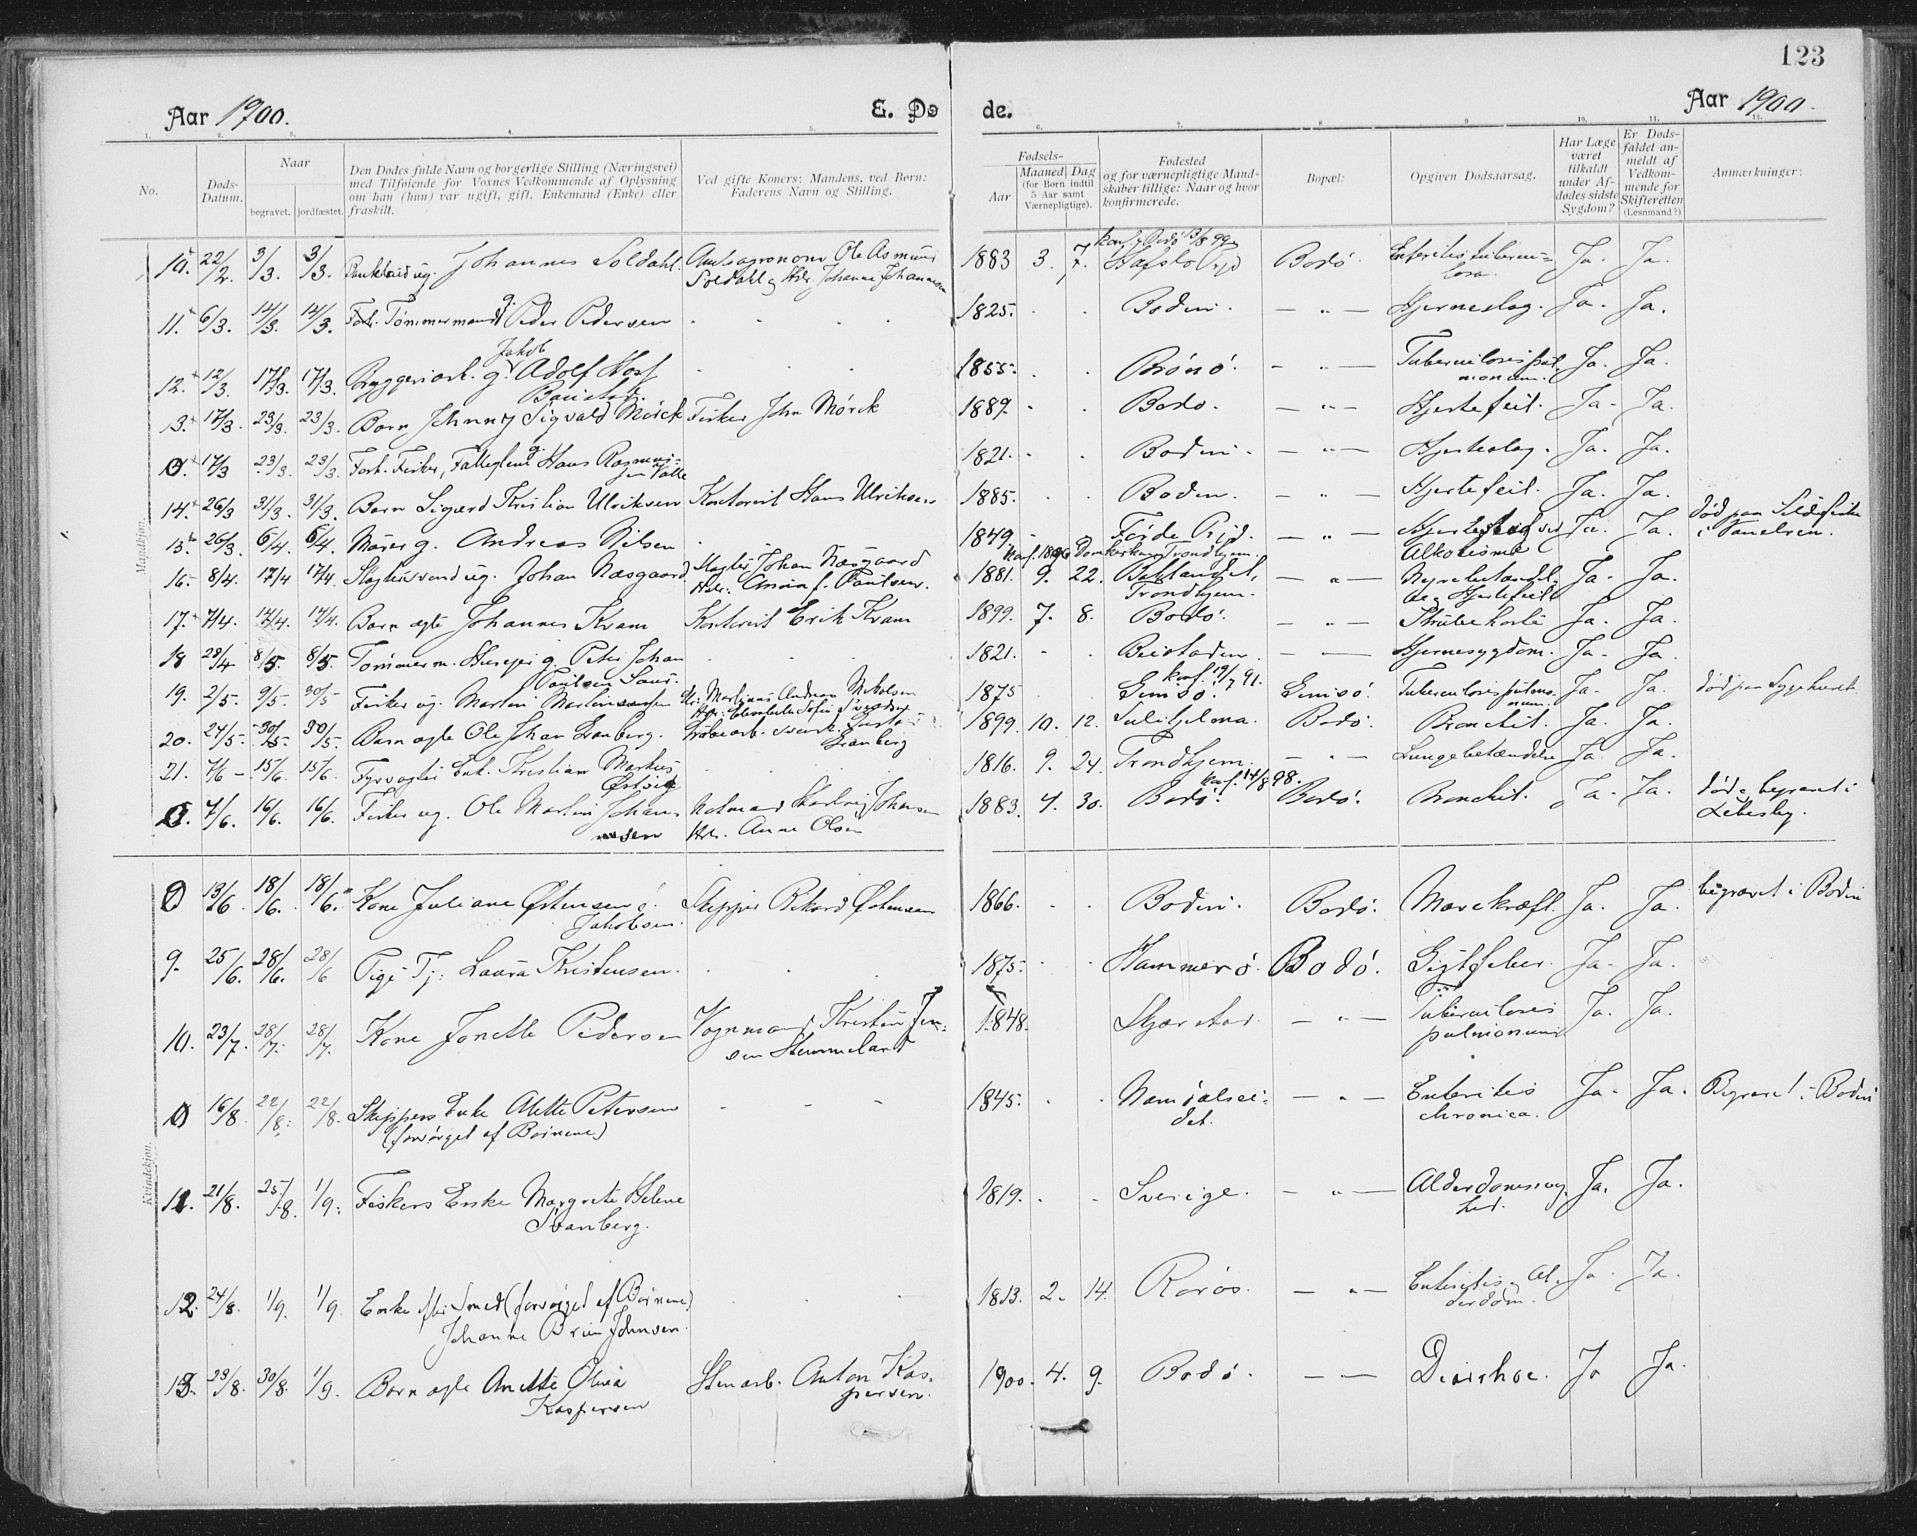 123
Aar 1900. E. Dø de. Aar 1900.
1. 2. 3. 4. 5. 6. 7. 8. 9. 10. 11. 12.
No. Døds-Datum. Naar begravet. jordfæstet. Den Dødes fulde Navn og borgerlige Stilling (Næringsvei) med Tilføiende for Voxnes Vedkommende af Oplysning om han (hun) var ugift, gift, Enkemand (Enke) eller fraskilt. Ved gifte Koner: Mandens, ved Børn: Faderens Navn og Stilling. Fødsels- Aar Maaned Dag (for Børn indtil 5 Aar samt Værnepligtige). Fødested og for værnepligtige Mandskaber tillige: Naar og hvor konfirmerede. Bopæl: Opgiven Dødsaarsag. Har Læge været tilkaldt under Afdødes sidste Sygdom? Er Dødsfaldet anmeldt af Vedkommende for Skifteretten (Lensmand?) Anmærkninger:
Mandkjøn.
10. 22/2. 3/3. 3/3. ug. Johannes Soldahl. Amtsagronom Ole Asmund Soldahl og Hstr. Johanne Johannesen 1883 3. 7. Konf. i Bodø 13/8 99 Hafslo Bodø. Enteritis tuberculosa. Ja. Ja.
11. 6/3. 12/3. 12/3. Forh. Tømmermand g. Peder Pedersen 1825. Bodin. — " — Hjerneslag. Ja. Ja.
12. 12/3. 17/3. 17/3. Bryggeriarb. g. Jakob Adolf Horf 1855. Brønø. — " — Tuberculosis pulmonum. Ja. Ja.
13. 17/3. 23/3. 23/3. Barn Johnny Sigvald Mørck Fisker John Mørck 1889. Bodø. — " — Hjertefeil. Ja. Ja.
0. 17/3 23/3. 23/3. Forh. Fisker, Fatteglem g. Hans Rasmussen Valle 1821. Bodin. — " — Hjerteslag. Ja. Ja.
14. 26/3 31/3. 31/3. Barn Sigurd Kristian Ulriksen Kontorist Hans Ulriksen 1885. Bodin. — " — Hjertefeil. Ja. Ja.
15. 26/3. 6/4. 6/4. Murer g. Andreas Nilsen 1849. Førde — " — Hjerteslag ved Alkoholisme Ja. Ja. død paa Sildefiske i
16. 8/4. 17/4 17/4. Slagtersvend ug. Johan Næsgaard Slagter Johan Næsgaard Hstr. Anna f. Paulsen. 1881. 9. 22. Konf. 1896 Domkirken Trondhjem. Baklandet, Trondhjem. — " — Nyrebetændelse og Hjertefeil Ja. Ja.
17. 7/4. 12/4. 12/4. Barn ægte Johannes Kvam Kontorist Erik Kvam 1899. 7. 8. Bodø. — " — Strubehoste Ja. Ja.
18 28/4 8/5. 8/5. Tømmerm. Huseier g. Peter Johan Paulsen Saus 1821. Beistaden. — " — Hjernesygdom. Ja. Ja.
19. 2/5. 9/5. 30/5 Fisker ug. Martin Martinussen Martinus Andreas Nikolsen Hstr. Elisabeth Sofie 1875 konf. 19/7 91. Gimsø. Gimsø. Tuberculosis pulmonum. Ja. Ja. død paa Sygehuset
20. 24/5. 30/5. 30/5. Barn ægte Ole Johan Granberg. Grubearb. svensk. Granberg 1899. 10. 12. Sulitjelma. Bodø. Bronchit. Ja. Ja.
21. 7/6 15/6. 15/6. Fyrvogter Enk. Kristian Markus Østvig 1816. 9. 24. Trondhjem. — " — Lungebetændelse Ja. Ja.
0. 4/6. 16/6. 16/6. Fisker ug. Ole Martin Johansen Notmand Hartvig Johansen Hstr. Anne Olsen 1883. 4. 30. konf. 14/8 98. Bodø. Bodø. Bronchit. Ja. Ja. død og begravet i Lebesby.
Kvindekjøn.
0 13/6. 18/6. 18/6. Kone Juliane Østensen f. Jakobsen. Skipper Rikard Østensen 1866. Bodin. Bodø. Mavekræft. Ja. Ja. begravet i Bodin
9. 25/6. 28/6. 28/6 Pige Tj: Laura Kristensen. 1875. Hammerø. Bodø. Gigtfeber. Ja. Ja.
10. 23/7. 28/7. 28/7. Kone Jonette Pedersen Vognmand Kristen Jensen Hemmeland 1848. Skjærstad. — " — Tuberculosis pulmonum Ja. Ja.
0 16/8. 22/8. 22/8. Skippers Enke Alette Petersen (forsørget af Børnene) 1845. Namdalseidet. — " — Enteritis chronica. Ja. Ja. Begravet i Bodin
11. 21/8. 25/8. 1/9. Fiskers Enke Margrete Helene Svanberg. 1819. Sverige. — " — Alderdomssvaghed. Ja. Ja.
12. 24/8. 1/9. 1/9. Enke efter Smed (forsørget af Børnene) Johanne Brun Johnsen. 1813. 2. 14. Rørøs. — " — Enteritis og Alderdom. Ja. Ja.
13. 28/8. 30/8. 1/9. Barn ægte Anette Olivia Kaspersen Stenarb. Anton Kaspersen. 1900. 4. 9. Bodø. — " — Diarrhoe. Ja Ja.